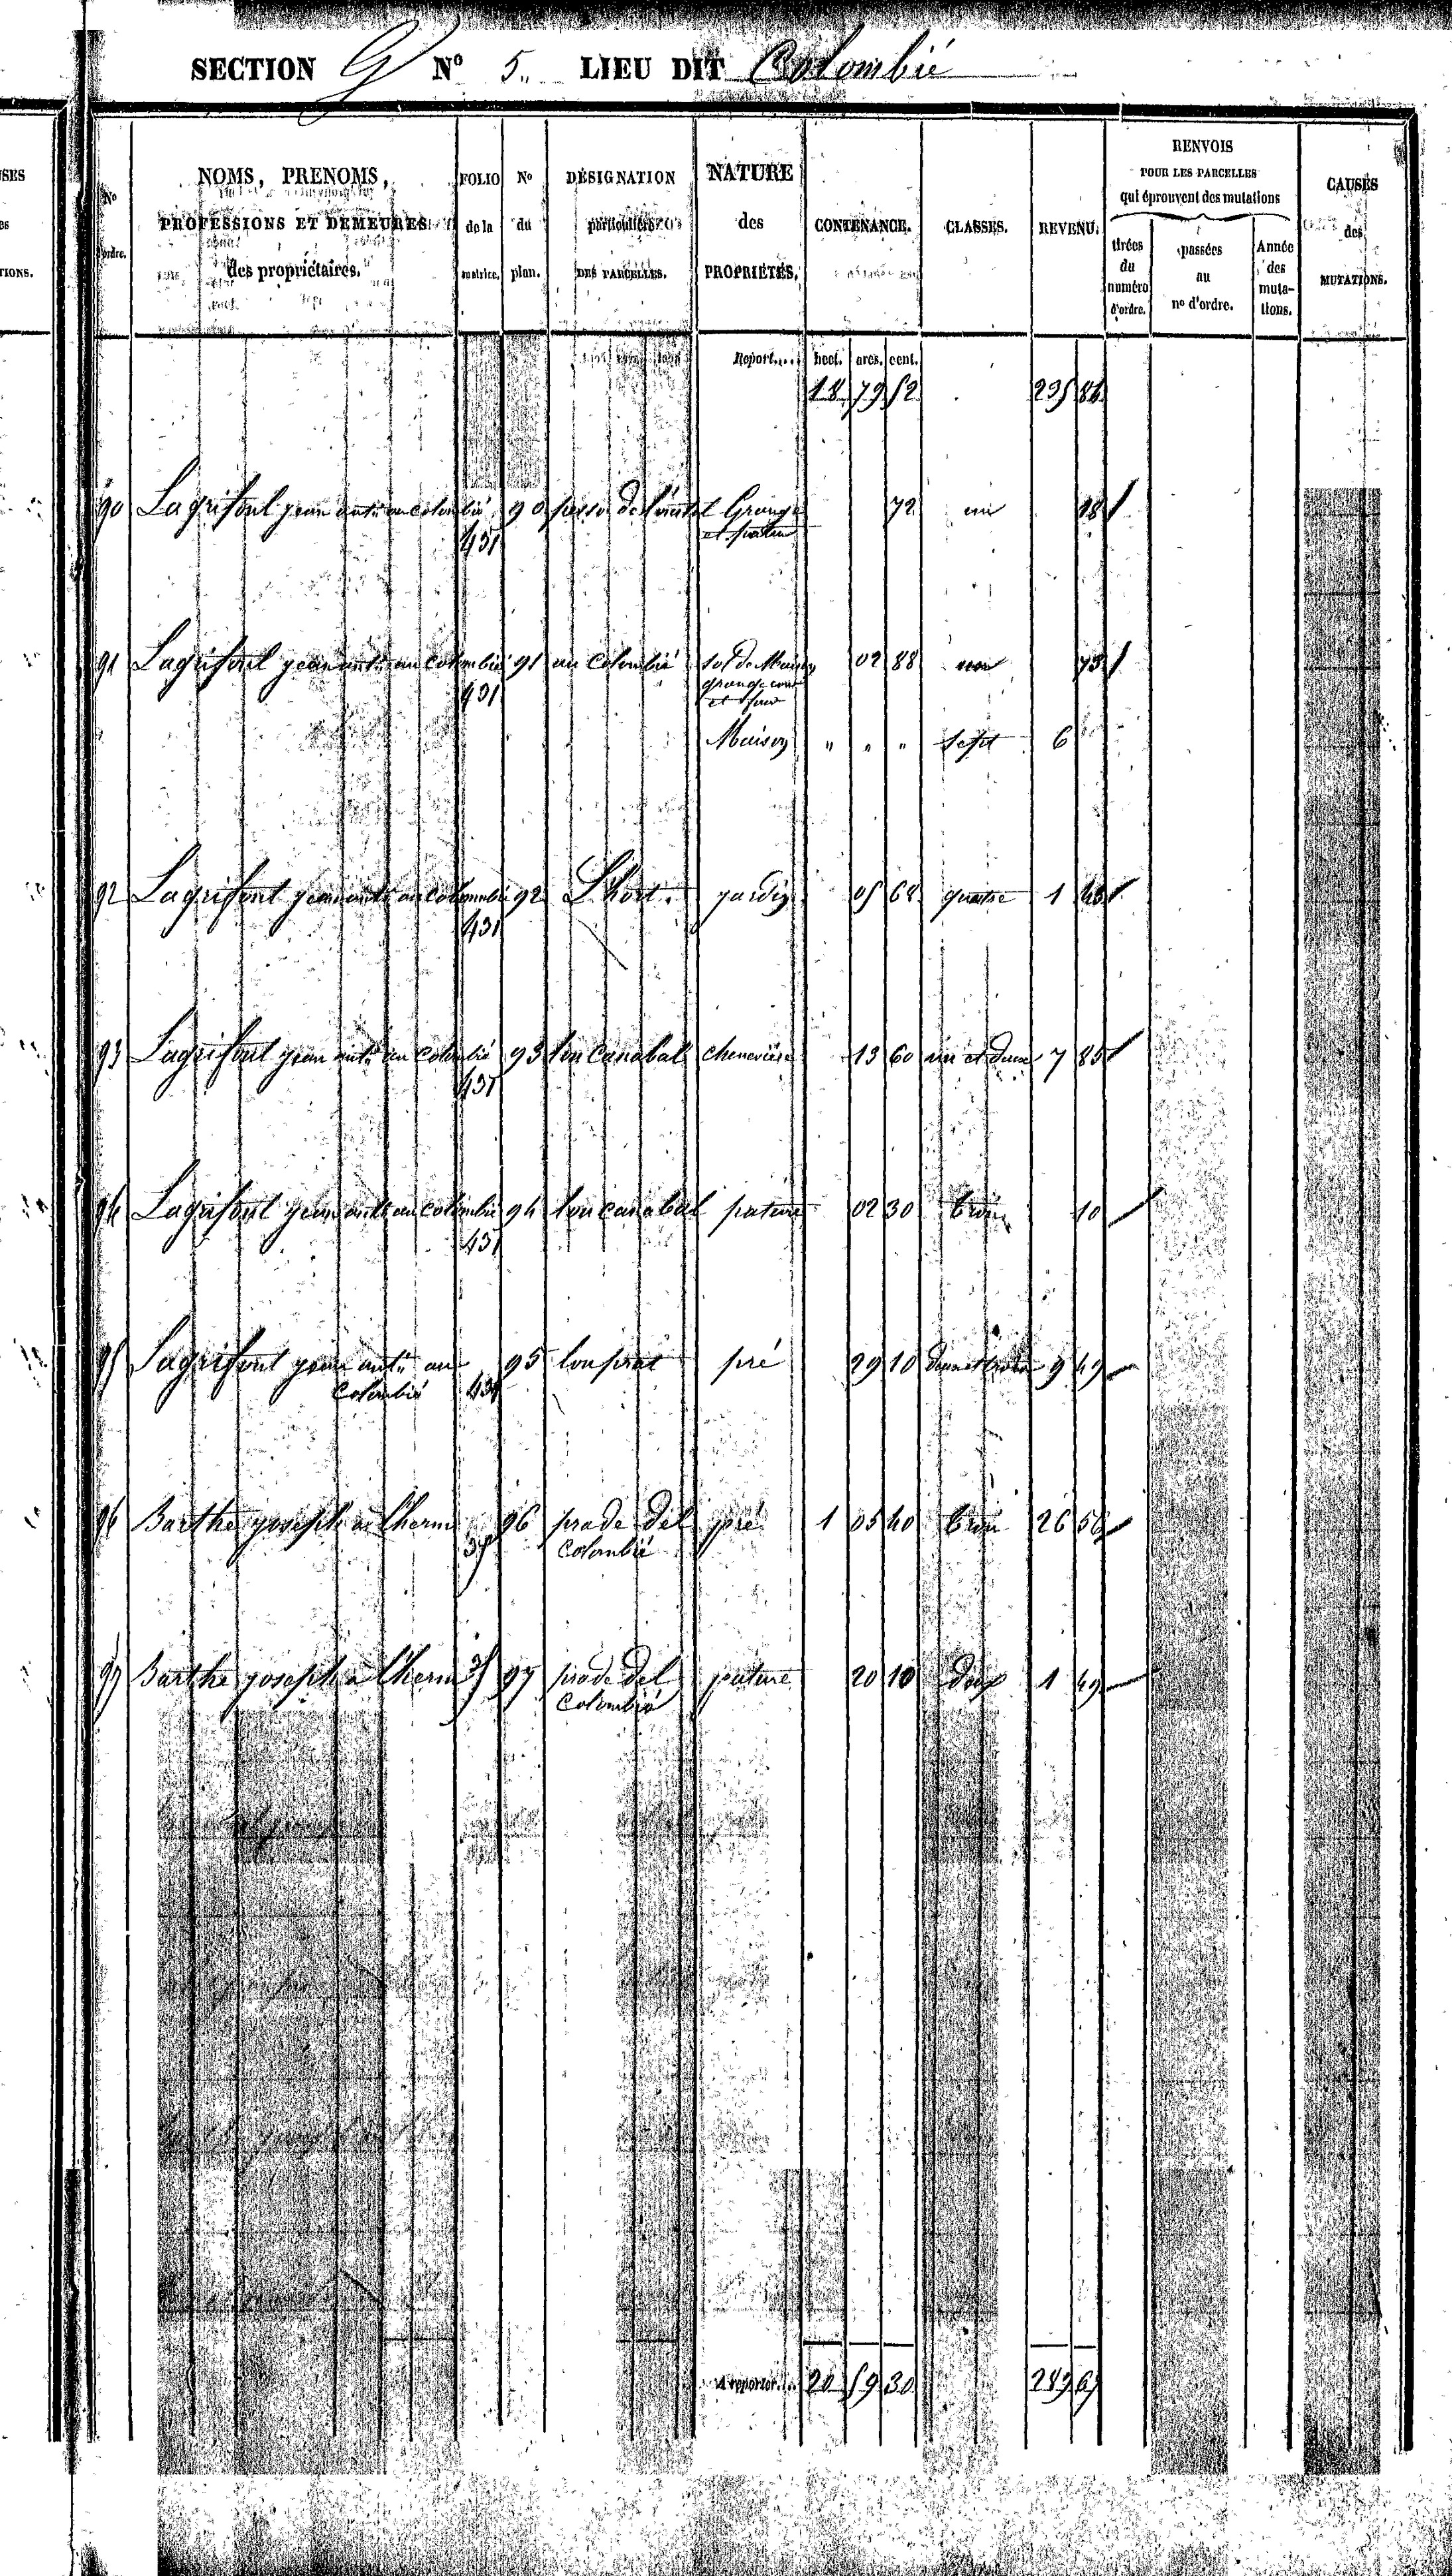 SECTION G N° 5. LIEU DIT Colombié
N° d'ordre.
NOMS, PRENOMS, PROFESSIONS ET DEMEURES des propriétaires.
FOLIO de la matrice.
N° du plan.
DÉSIGNATION particulière DES PARCELLES.
NATURE des PROPRIÉTÉS.
CONTENANCE.
CLASSES.
REVENU.
RENVOIS POUR LES PARCELLES qui éprouvent des mutations
tirées du numéro d'ordre.
passées au n° d'ordre.
Année des mutations.
CAUSES des MUTATIONS.
Report.... hect. ares. cent.
18 79 52 235 84
90 Lagrifoul jean ante au colombié 431 90 de l'oustal Grange et patus 72 un 18
91 Lagrifoul jean ante au colombié 431 91 au Colombié sol de Maison grange cour et four 02 88 une 75
Maison " " " sept 6
92 Lagrifoul jean ante au colombié 431 92 L'hort. jardin 05 68 quatre 1 43
93 Lagrifoul jean ante au colombié 431 93 lou canabal chenevière 13 60 un et deux 7 85
94 Lagrifoul jean ante au colombié 431 94 lou canabal pature 02 30 trois 10
95 Lagrifoul jean ante au colombié 431 95 lou prat pré 29 10 deux et trois 9 49
96 Barthe joseph à l'herm 35 96 prade del Colombié pré 1 05 40 trois 26 56
97 Barthe joseph à l'herm 35 97 prade del Colombié pature 20 10 deux 1 49
A reporter.... 20 59 30 289 69